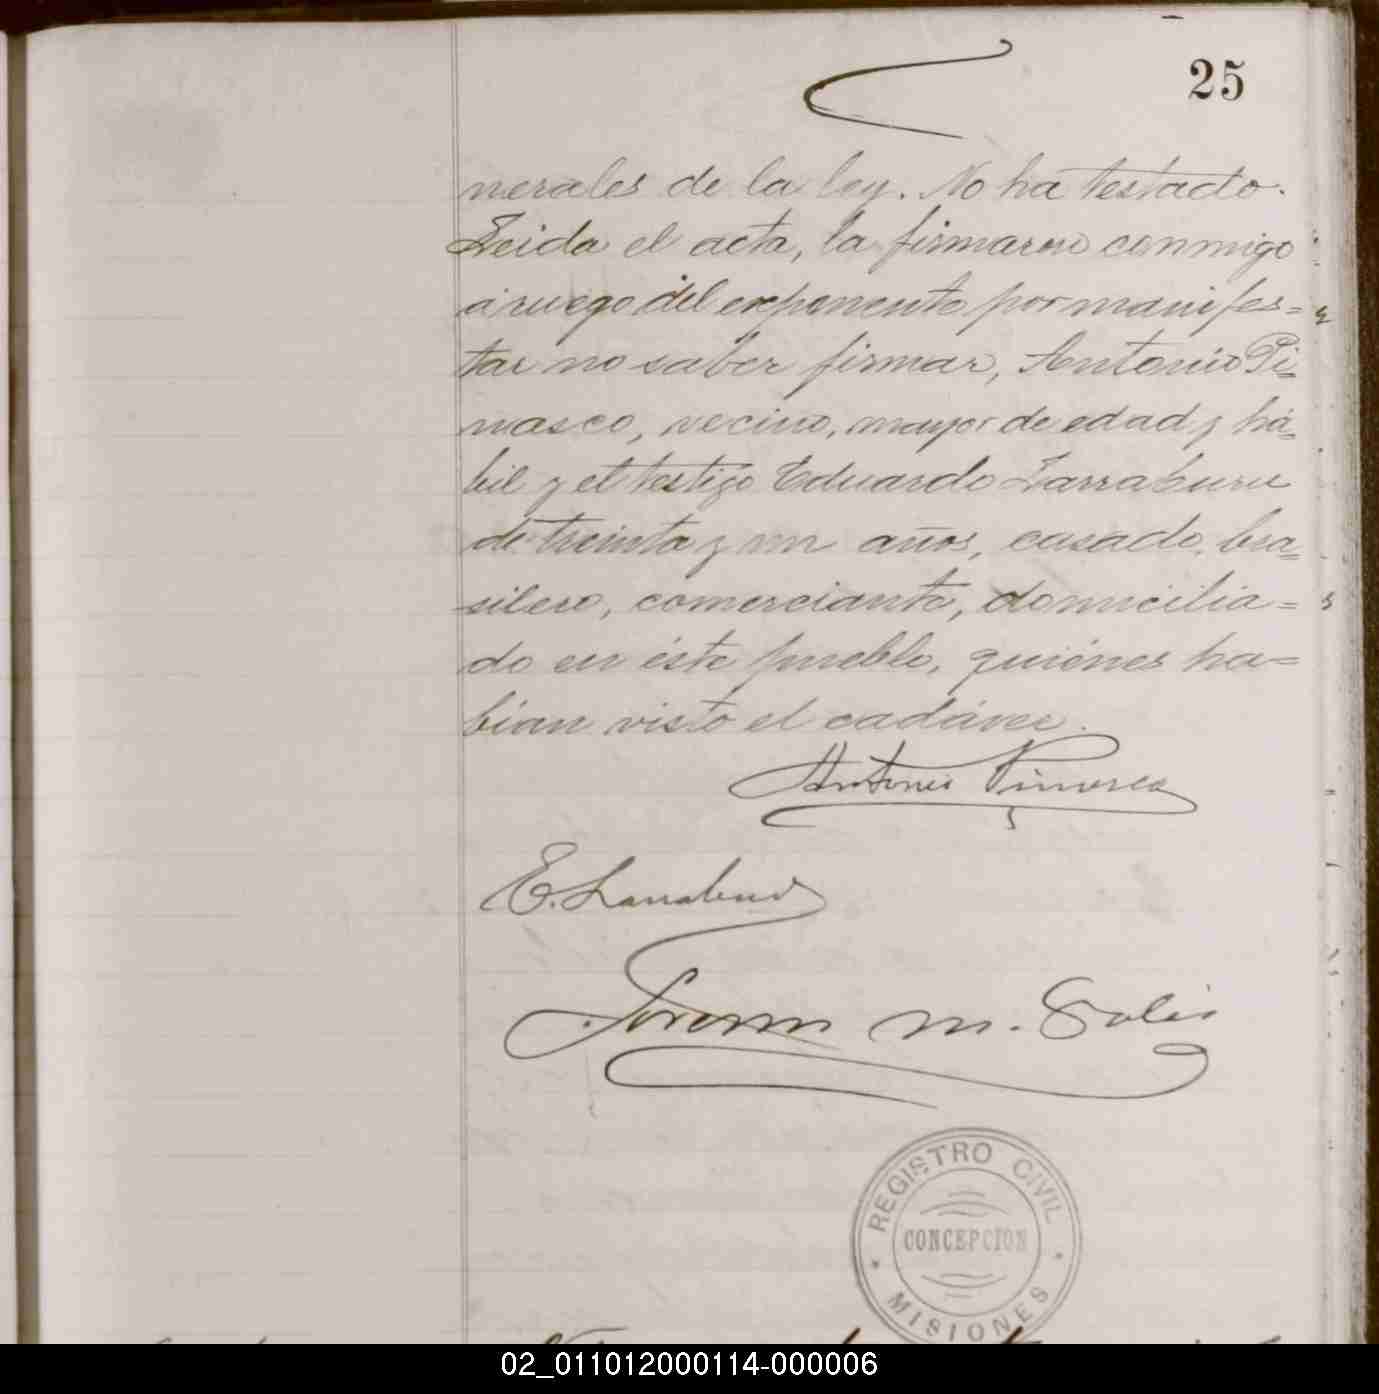 25
nerales de la ley. No ha testado.
Leida el acta, la firmaron conmigo
á ruego del exponente por manifes=
tar no saber firmar, Antonio Pi=
nasco, vecino, mayor de edad y há=
bil y el testigo Eduardo Larraburu
de treinta y un años, casado, bra=
silero, comerciante, domicilia=
do en éste pueblo, quiénes ha=
bían visto el cadáver.
Antonio Pinasco
E. Larraburu
M. Solis
REGISTRO CIVIL
CONCEPCION
MISIONES
02_011012000114-000006